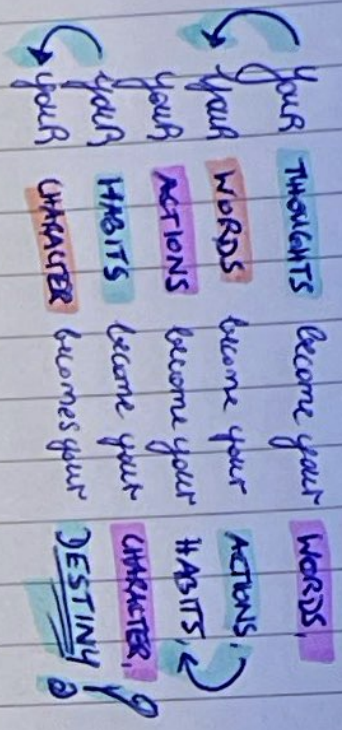 your THOUGHTS become your WORDS,
your WORDS become your ACTIONS,
your ACTIONS become your HABITS,
your HABITS become your CHARACTER,
your CHARACTER becomes your DESTINY